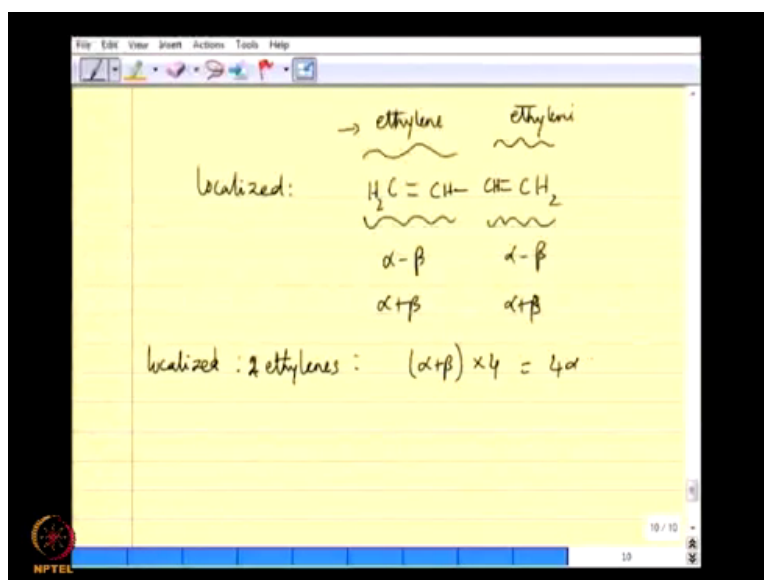 File Edit View Insert Actions Tools Help
→ ethylene ethyleni
localized: H₂C = CH- CH= CH₂
α-β α-β
α+β α+β
localized : 2 ethylenes : (α+β) ×4 = 4α
10 / 10
10
NPTEL